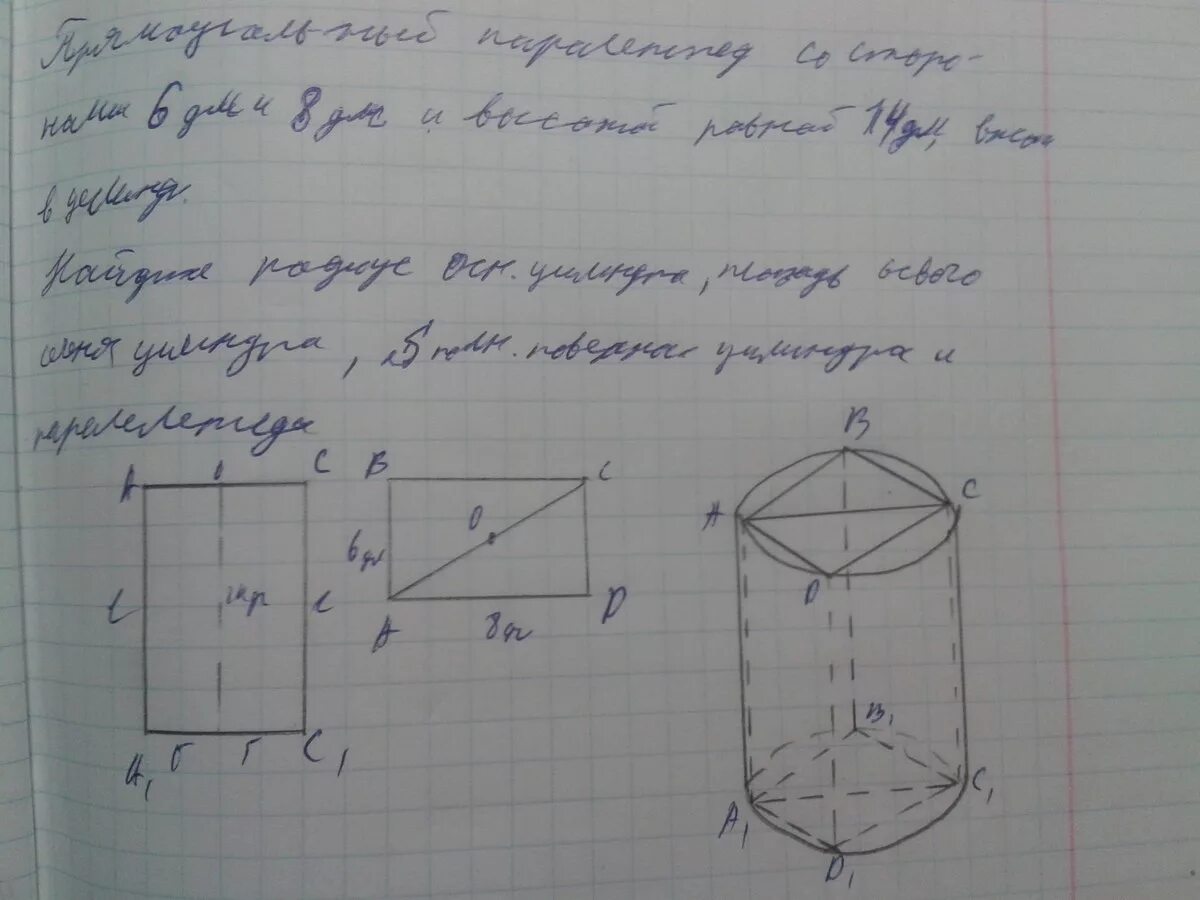 Прямоугольный паралепипед со сторо-
нами 6 дм и 8 дм и высотой равной 14 дм, впис
в цилиндр.
Найдите радиус осн. цилиндра, площадь осевого
цилиндра, S полн. поверхнос цилиндра и
паралелепипеда
A O C
B C
B
6 дм O
A C
l l
A 8 дм D
D
A₁ r r C₁
B₁
A₁ C₁
D₁